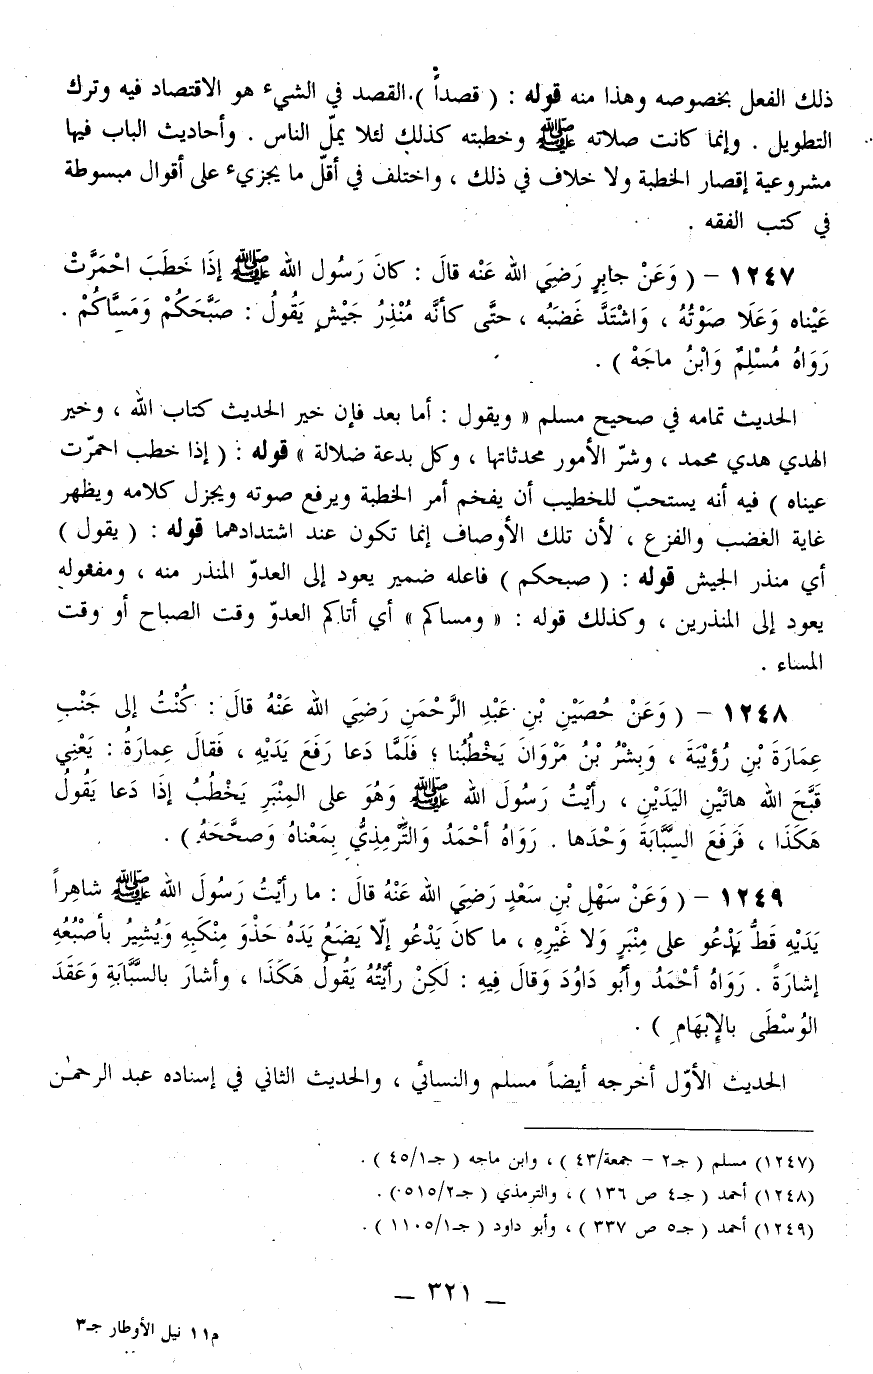 ذلك الفعل بخصوصه وهذا منه قوله : ( قصداً ) . القصد في الشيء هو الاقتصاد فيه وترك
التطويل . وإنما كانت صلاته ﷺ وخطبته كذلك لئلا يملّ الناس . وأحاديث الباب فيها
مشروعية إقصار الخطبة ولا خلاف في ذلك ، واختلف في أقلّ ما يجزيء على أقوال مبسوطة
في كتب الفقه .
١٢٤٧ - ( وَعَنْ جابِرٍ رَضِيَ الله عَنْه قالَ : كانَ رَسُول الله ﷺ إذَا خَطَبَ احْمَرَّتْ
عَيْناه وَعَلَا صَوْتُهُ ، وَاشْتَدَّ غَضَبُه ، حتَّى كأنَّه مُنْذِرُ جَيْشٍ يَقُولُ : صَبَّحَكُمْ وَمَسَّاكُمْ .
رَوَاهُ مُسْلِمٌ وَابْنُ ماجَهْ ) .
الحديث تمامه في صحيح مسلم « ويقول : أما بعد فإن خير الحديث كتاب الله ، وخير
الهدي هدي محمد ، وشرّ الأمور محدثاتها ، وكل بدعة ضلالة » قوله : ( إذا خطب احمرّت
عيناه ) فيه أنه يستحبّ للخطيب أن يفخم أمر الخطبة ويرفع صوته ويجزل كلامه ويظهر
غاية الغضب والفزع ، لأن تلك الأوصاف إنما تكون عند اشتدادهما قوله : ( يقول )
أي منذر الجيش قوله : ( صبحكم ) فاعله ضمير يعود إلى العدوّ المنذر منه ، ومفعوله
يعود إلى المنذرين ، وكذلك قوله : « ومساكم » أي أتاكم العدوّ وقت الصباح أو وقت
المساء .
١٢٤٨ - ( وَعَنْ حُصَيْنِ بْنِ عَبْدِ الرَّحْمَنِ رَضِيَ الله عَنْهُ قالَ : كُنْتُ إلى جَنْبِ
عِمَارَةَ بْنِ رُؤيْبَةَ ، وَبِشْرُ بْنُ مَرْوَانَ يَخْطُبُنا ؛ فَلَمَّا دَعا رَفَعَ يَدَيْهِ ، فَقالَ عِمارَةُ : يَعْنِي
قَبَّحَ الله هاتَيْنِ اليَدَيْنِ ، رأيْتُ رَسُولَ الله ﷺ وَهُوَ على المِنْبَرِ يَخْطُبُ إذَا دَعا يَقُولُ
هَكَذَا ، فَرَفَعَ السَّبَّابَةَ وَحْدَها . رَوَاهُ أحْمَدُ وَالتِّرْمِذِيُّ بِمَعْناهُ وَصحَّحَهُ ) .
١٢٤٩ - ( وَعَنْ سَهْلِ بْنِ سَعْدٍ رَضِيَ الله عَنْهُ قالَ : ما رأيْتُ رَسُولَ الله ﷺ شاهِراً
يَدَيْهِ قَطُّ يَدْعُو على مِنْبَرٍ وَلا غَيْرِهِ ، ما كانَ يَدْعُو إلَّا يَضَعُ يَدَهُ حَذْوَ مِنْكَبِهِ وَيُشِيرُ بأصْبُعُهِ
إشارَةً . رَوَاهُ أحْمَدُ وأبُو دَاوُدَ وَقالَ فِيهِ : لَكِنْ رأيْتُهُ يَقُولُ هَكَذَا ، وأشارَ بالسَّبَّابَةِ وَعَقَدَ
الوُسْطَى بالإبْهَامِ ) .
الحديث الأوّل أخرجه أيضاً مسلم والنسائي ، والحديث الثاني في إسناده عبد الرحمٰن
(١٢٤٧) مسلم ( جـ٢ - جمعة/٤٣ ) ، وابن ماجه ( جـ٤٥/١ ) .
(١٢٤٨) أحمد ( جـ٤ ص ١٣٦ ) ، والترمذي ( جـ٥١٥/٢ ) .
(١٢٤٩) أحمد ( جـ٥ ص ٣٣٧ ) ، وأبو داود ( جـ١١٠٥/١ ) .
— ٣٢١ —
م١١ نيل الأوطار جـ٣